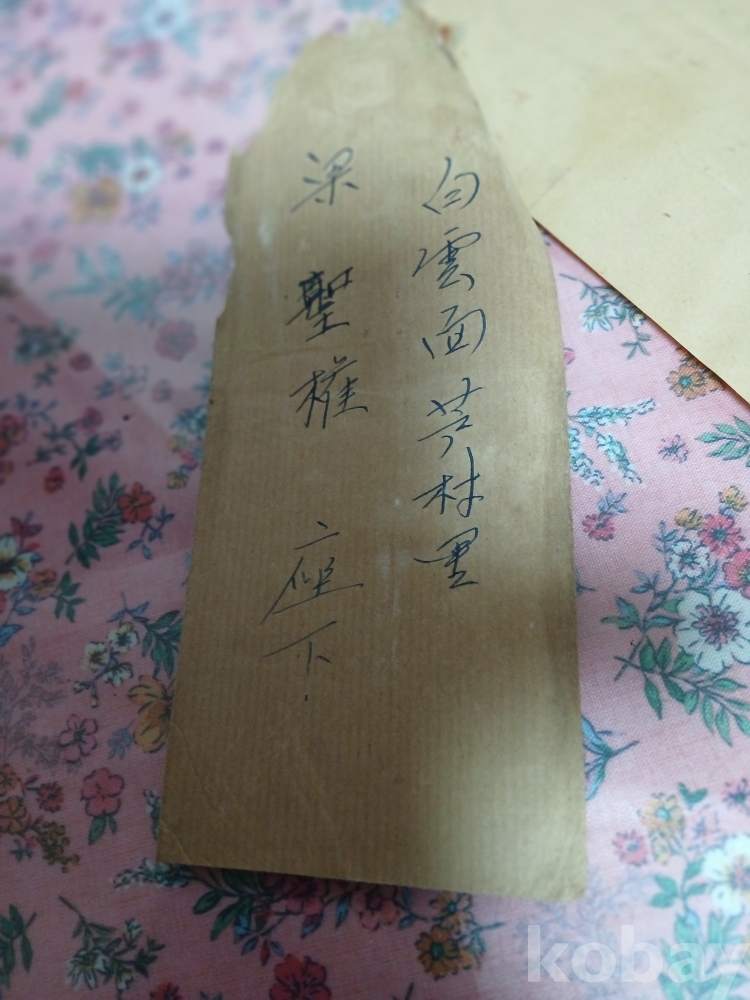 白雲面芳村里
梁聖權 座下
kobay